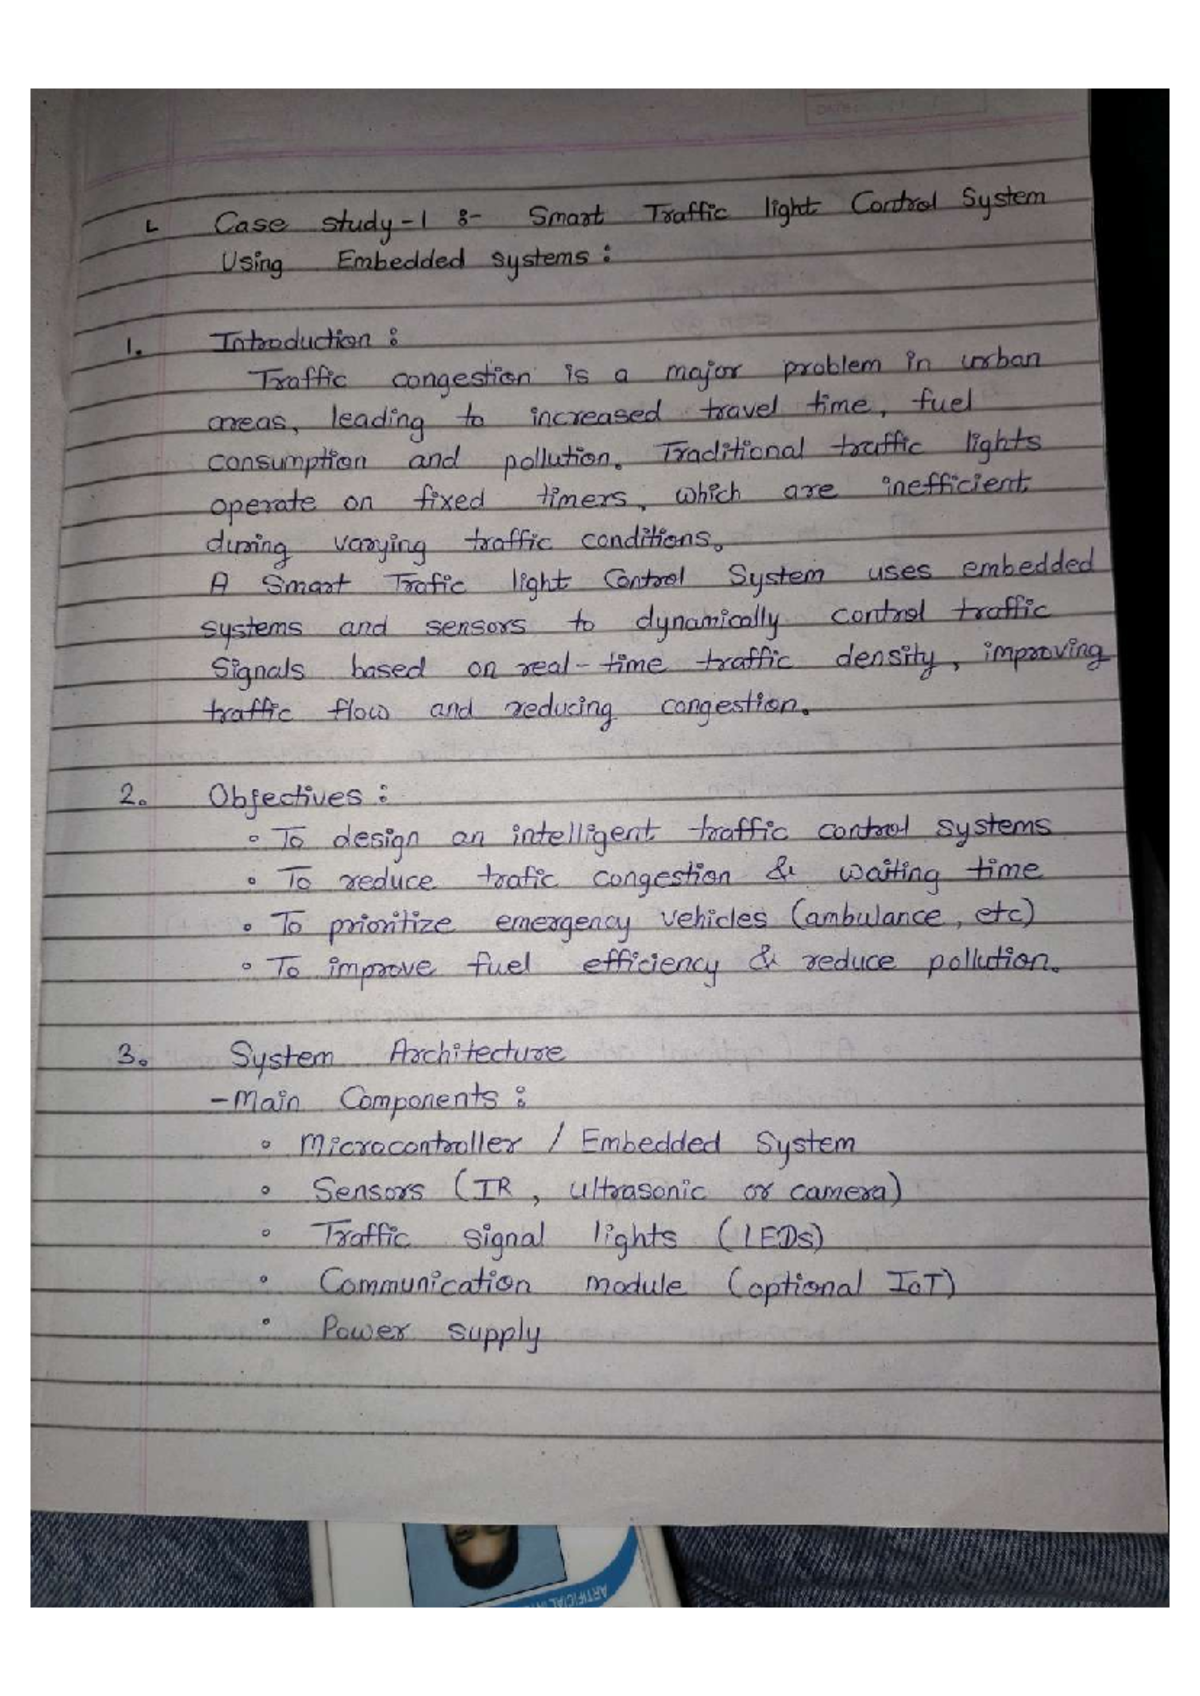 L Case study-1 :- Smart Traffic light Control System
Using Embedded systems :
1. Introduction :
Traffic congestion is a major problem in urban
areas, leading to increased travel time, fuel
consumption and pollution. Traditional traffic lights
operate on fixed timers, which are inefficient
during varying traffic conditions.
A Smart Trafic light Control System uses embedded
systems and sensors to dynamically control traffic
Signals based on real-time traffic density, improving
traffic flow and reducing congestion.
2. Objectives :
• To design an intelligent traffic control systems
• To reduce trafic congestion & waiting time
• To prioritize emergency vehicles (ambulance, etc)
• To improve fuel efficiency & reduce pollution.
3. System Architecture
-Main Components :
• Microcontroller / Embedded System
• Sensors (IR, ultrasonic or camera)
• Traffic signal lights (LEDs)
• Communication module (optional IoT)
• Power supply
ARTIFICIAL